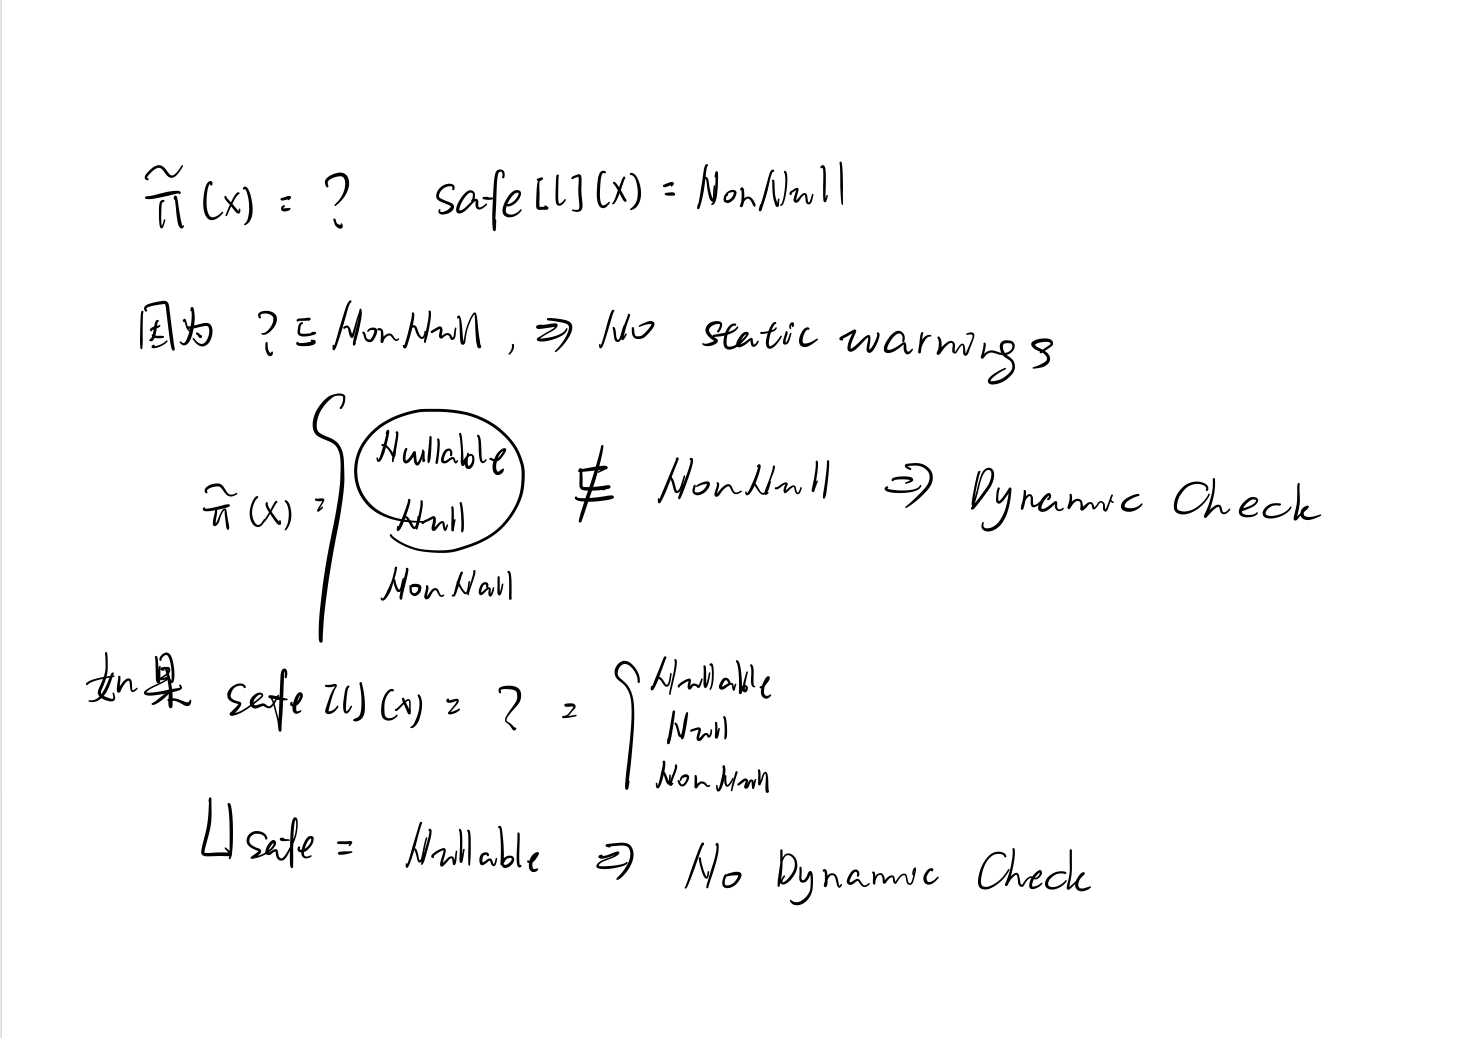 π̃(x) = ? safe[l](x) = NonNull
因为 ? ⊑ NonNull, ⇒ No static warnings
π̃(x) = { Nullable
Null
NonNull
⋢ NonNull ⇒ Dynamic Check
如果 safe[l](x) = ? = { Nullable
Null
NonNull
⊔ safe = Nullable ⇒ No Dynamic Check